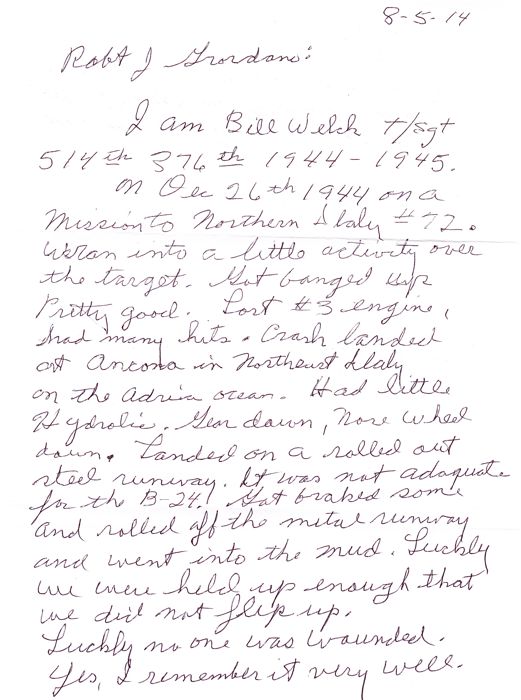 8-5-14
Robt J Giordano:
I am Bill Welch T/Sgt
514th 376th 1944-1945.
On Dec 26th 1944 on a
Mission to Northern Italy #72.
We ran into a little activity over
the target. Got banged up
Pretty good. Lost #3 engine,
had many hits. Crash landed
at Ancona in Northeast Italy
on the Adria ocean. Had little
Hydrolic. Gear down, Nose wheel
down. Landed on a rolled out
steel runway. It was not adaquate
for the B-24! Got braked some
and rolled off the metal runway
and went into the mud. Luckly
we were held up enough that
we did not flip up.
Luckly no one was wounded.
Yes, I remember it very well.